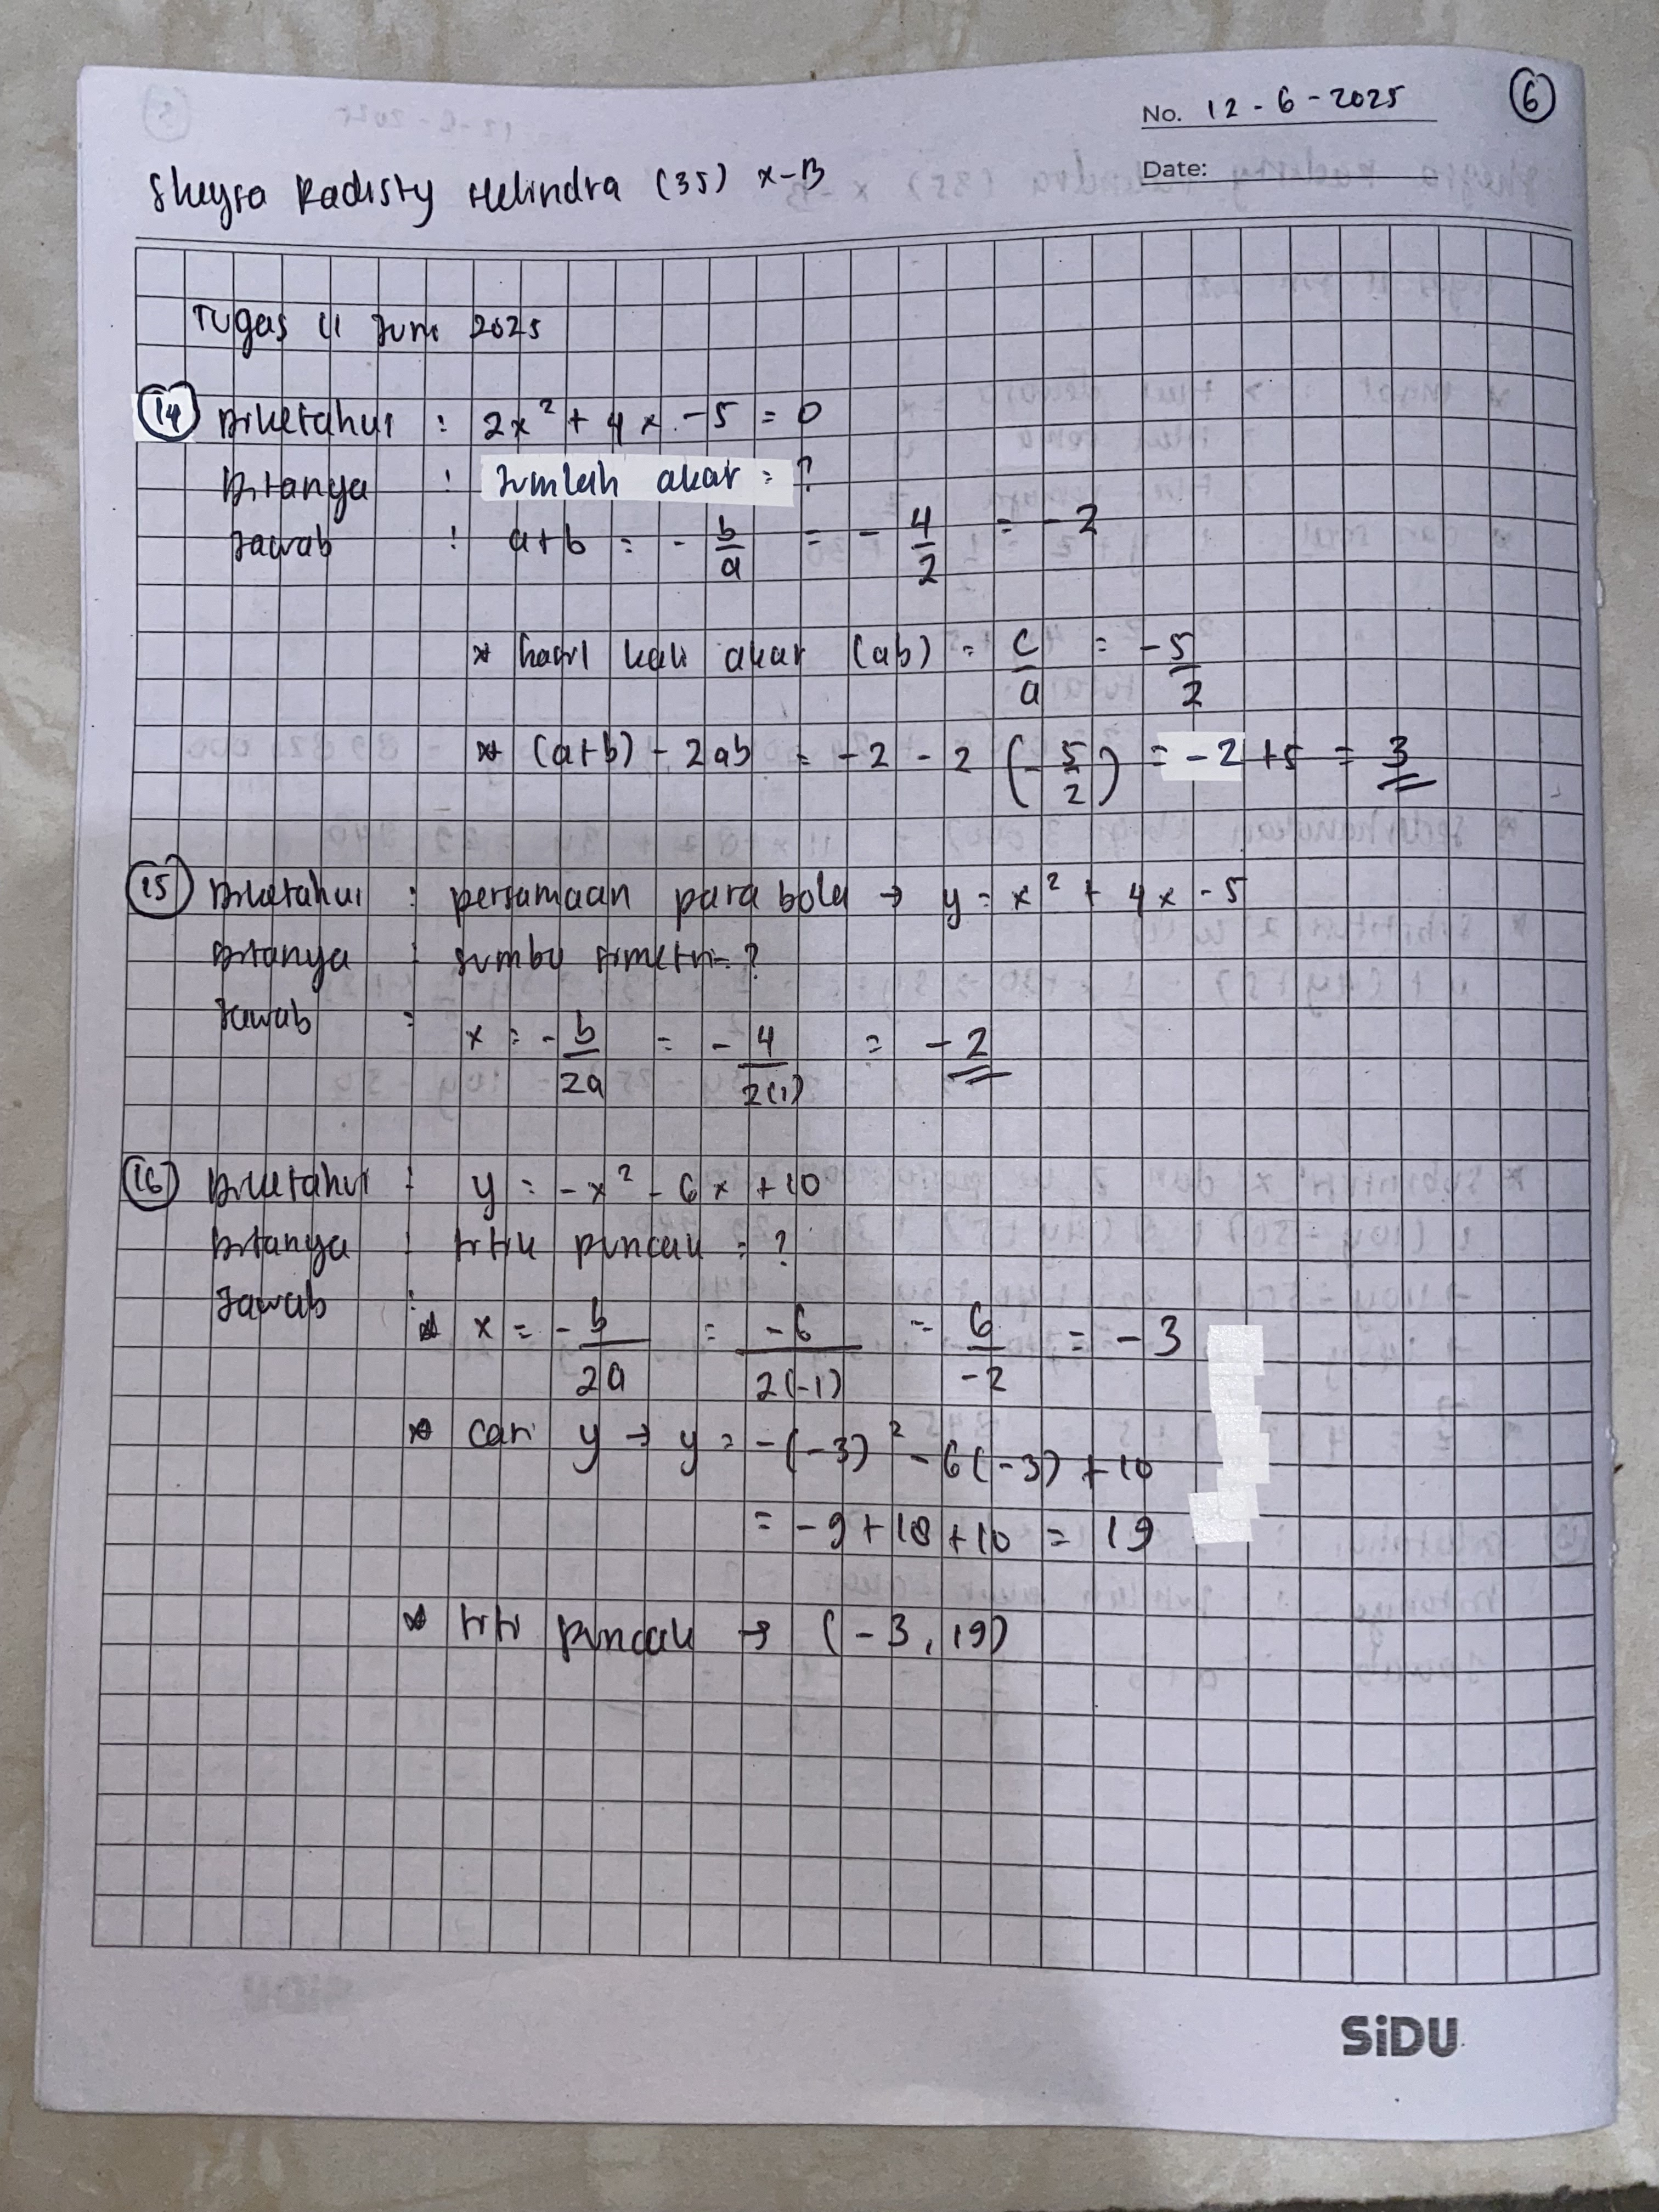 No. 12-6-2025
6
Date:
Sheyra Radisty Helindra (35) X-B
Tugas 11 Juni 2025
14 Diketahui : 2x² + 4x - 5 = 0
Ditanya : Jumlah akar = ?
Jawab : a+b = - b/a = - 4/2 = -2
* hasil kali akar (ab) = c/a = -5/2
* (a+b) - 2ab = -2 - 2 (-5/2) = -2 +5 = 3
15 Diketahui : persamaan parabola → y = x² + 4x - 5
Ditanya : Sumbu simetri = ?
Jawab : x = - b/2a = - 4/2(1) = -2
16 Diketahui : y = -x² - 6x + 10
Ditanya : titik puncak = ?
Jawab : * x = - b/2a = -6/2(-1) = 6/-2 = -3
* cari y → y = -(-3)² - 6(-3) + 10
= -9 + 18 + 10 = 19
* titik puncak → (-3, 19)
SiDU